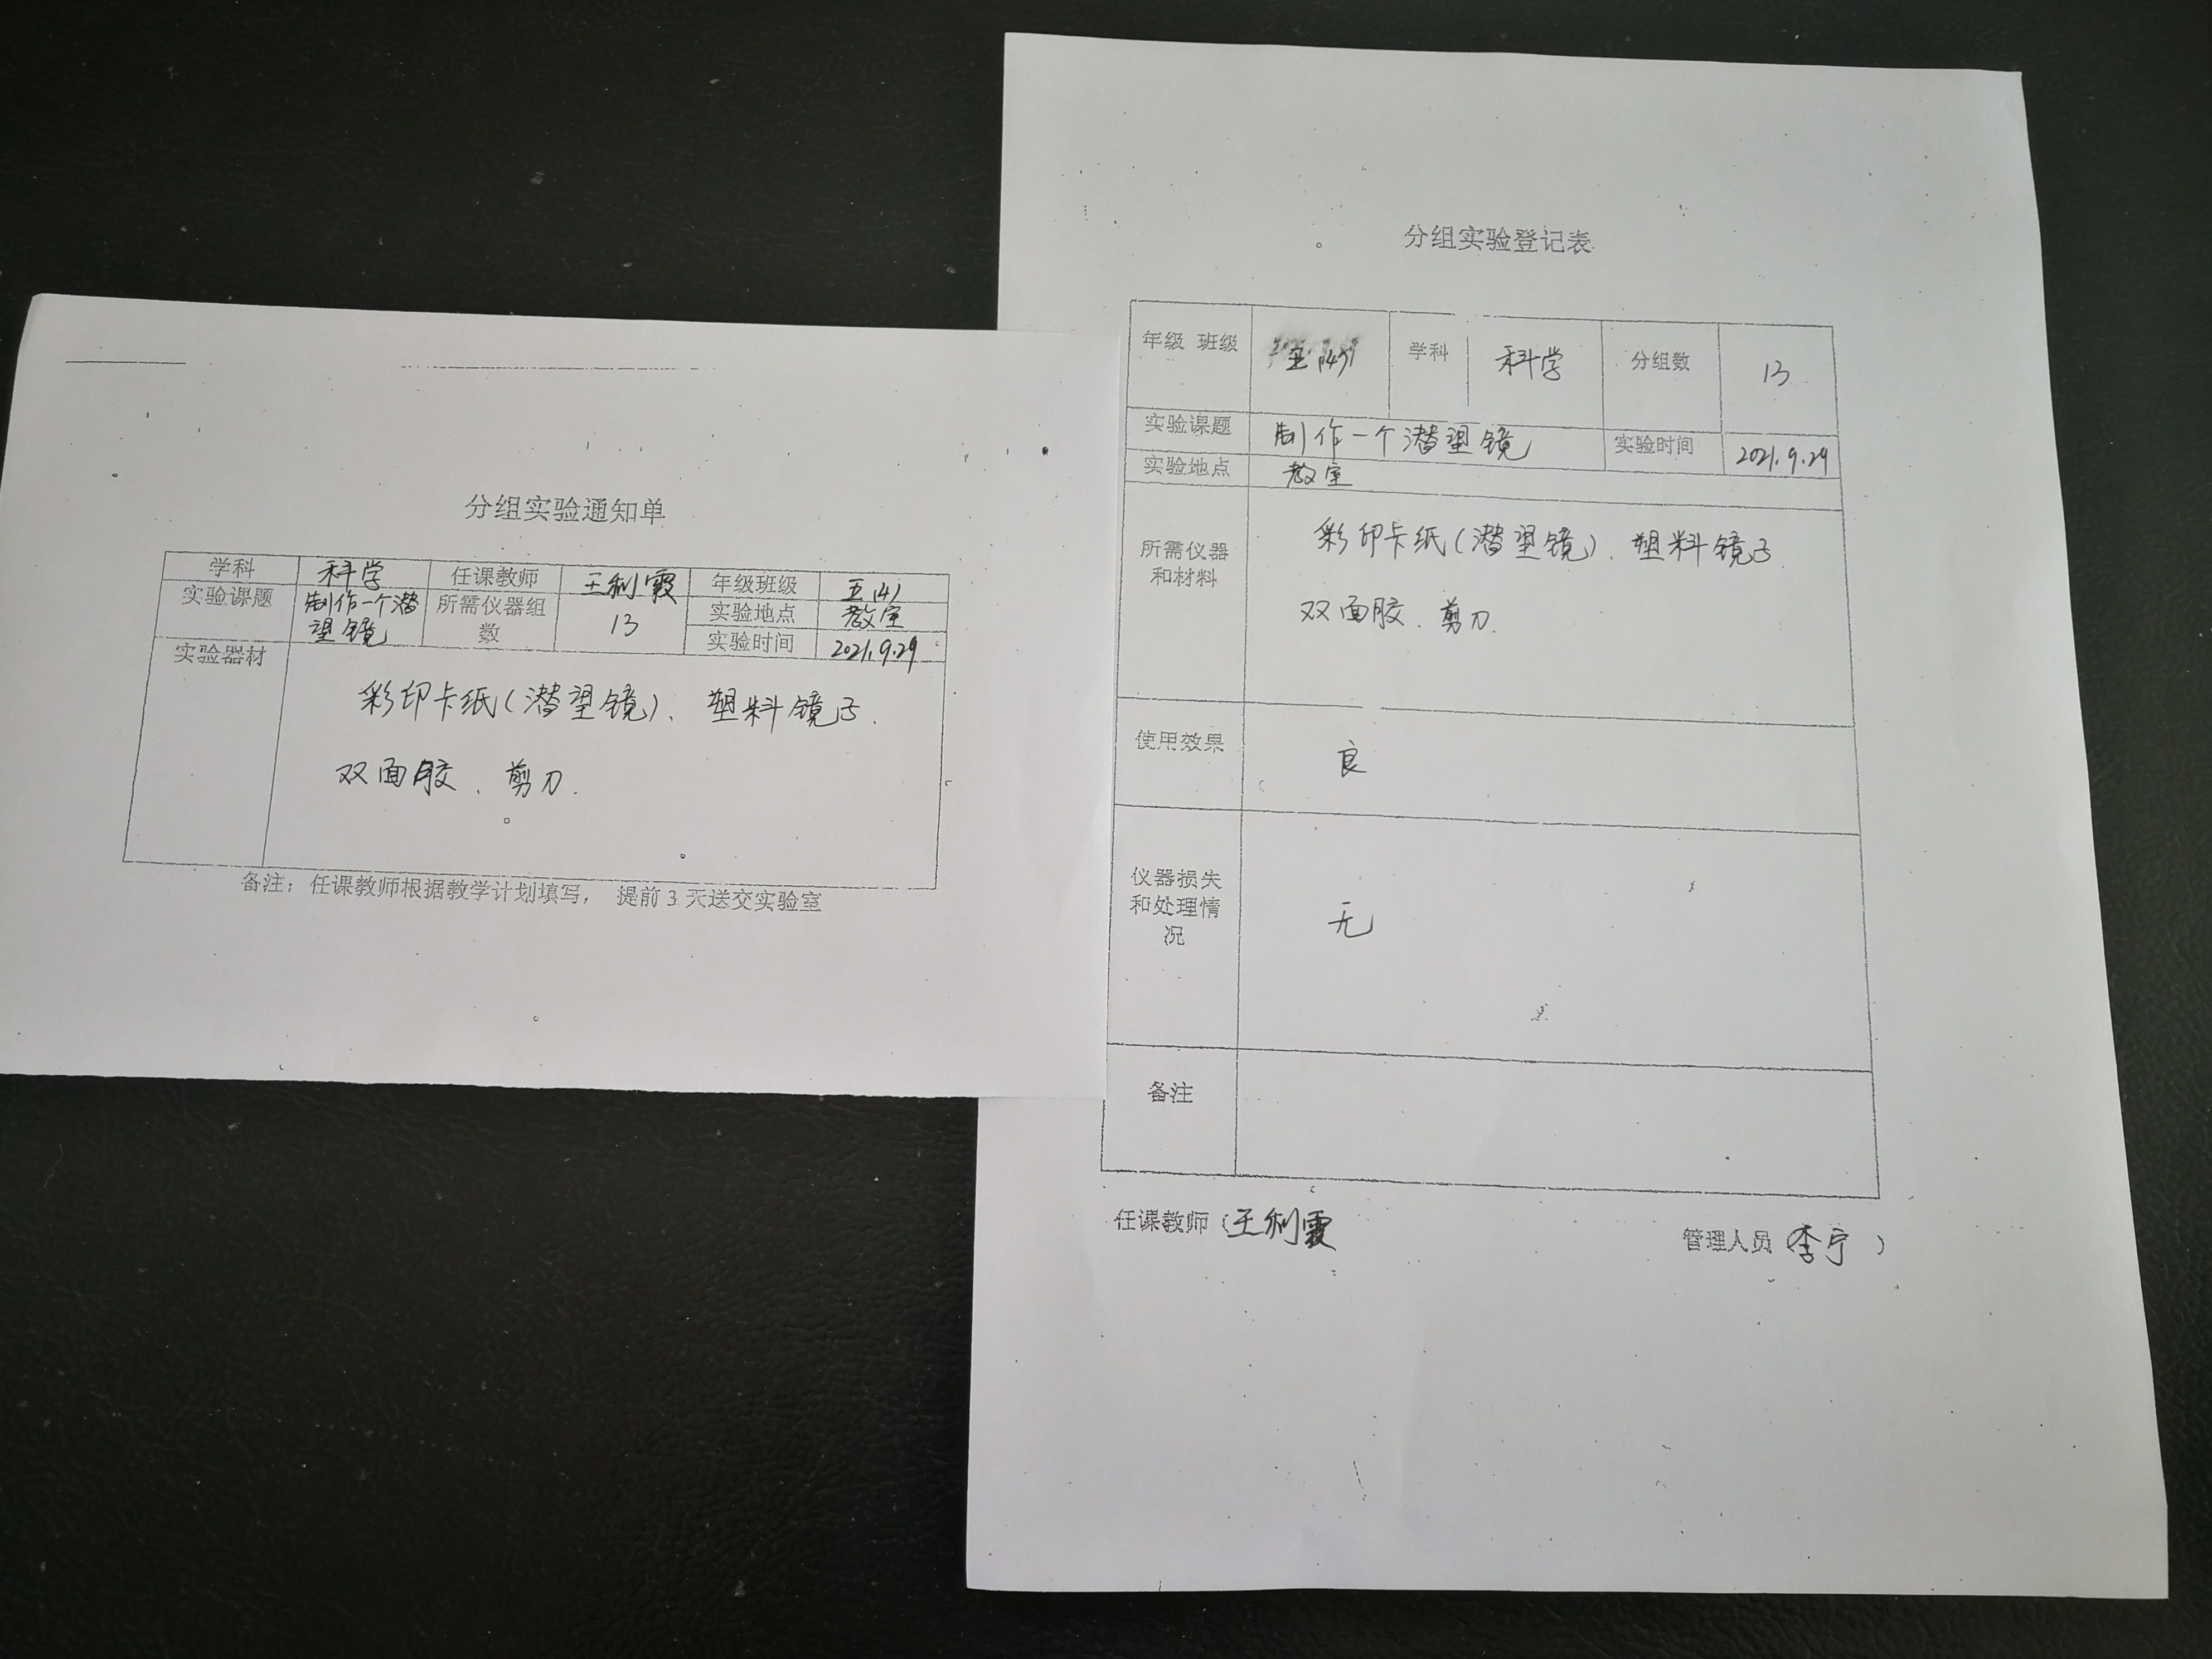 分组实验通知单
学科 科学 任课教师 王利霞 年级班级 五(4)
实验课题 制作一个潜望镜 所需仪器组数 13 实验地点 教室
实验时间 2021.9.29
实验器材 彩印卡纸(潜望镜)、塑料镜子、
双面胶、剪刀.
备注：任课教师根据教学计划填写， 提前3天送交实验室
分组实验登记表
年级 班级 五(4) 学科 科学 分组数 13
实验课题 制作一个潜望镜 实验时间 2021.9.29
实验地点 教室
所需仪器和材料 彩印卡纸(潜望镜)、塑料镜子
双面胶、剪刀.
使用效果 良
仪器损失和处理情况 无
备注
任课教师（王利霞 管理人员（李宁 ）